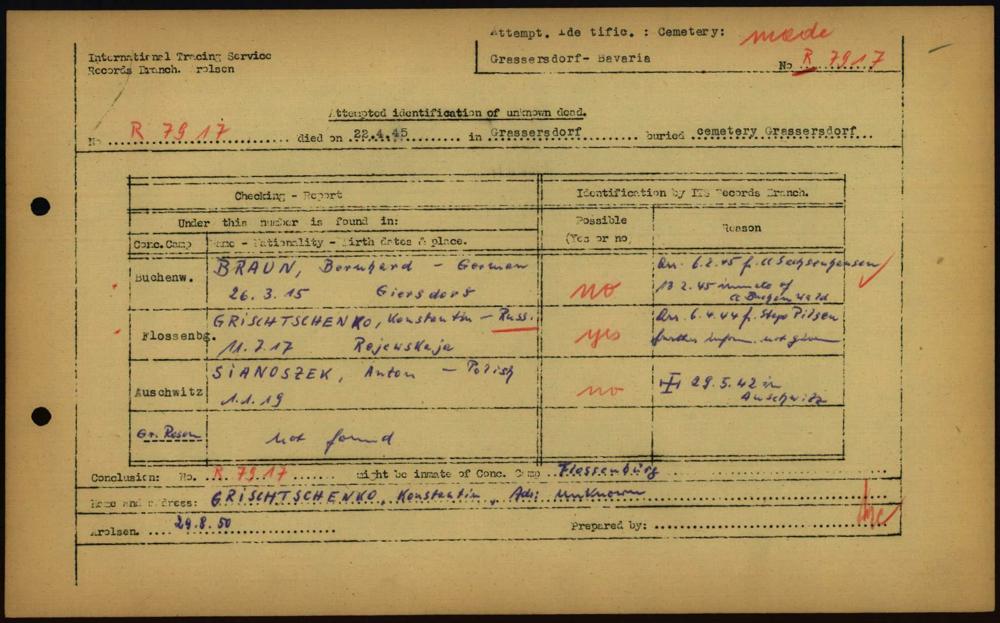 Attempt. Ide tific. : Cemetery: made
International Tracing Service
Records Branch. Arolsen
Grassersdorf- Bavaria
No R 7917
Attempted identification of unknown dead.
No R 7917 died on 22.4.45 in Grassersdorf buried cemetery Grassersdorf
Checking - Report
Identification by ITS Records Branch.
Under this number is found in:
Possible (Yes or no)
Reason
Conc. Camp
Name - Nationality - Birth dates & place.
Buchenw.
BRAUN, Bernhard - German
26.3.15 Giersdorf
no
Arr. 6.2.45 f. Cl Sachsenhausen
13 2.45 inmate of
Cl Buchenwald
Flossenbg.
GRISCHTSCHENKO, Konstantin - Russ.
11.7.17 Rajewskaja
yes
Arr. 6.4.44 f. Stapo Pilsen
further inform. not given
Auschwitz
SIANOSZEK, Anton - Polish
1.1.19
no
29.5.42 in
Auschwitz
Gr. Rosen
not found
Conclusion: No. R. 7917 might be inmate of Conc. Camp Flossenbürg
Name and address: GRISCHTSCHENKO, Konstantin, Ad: unknown
Arolsen. 29.8.50
Prepared by: